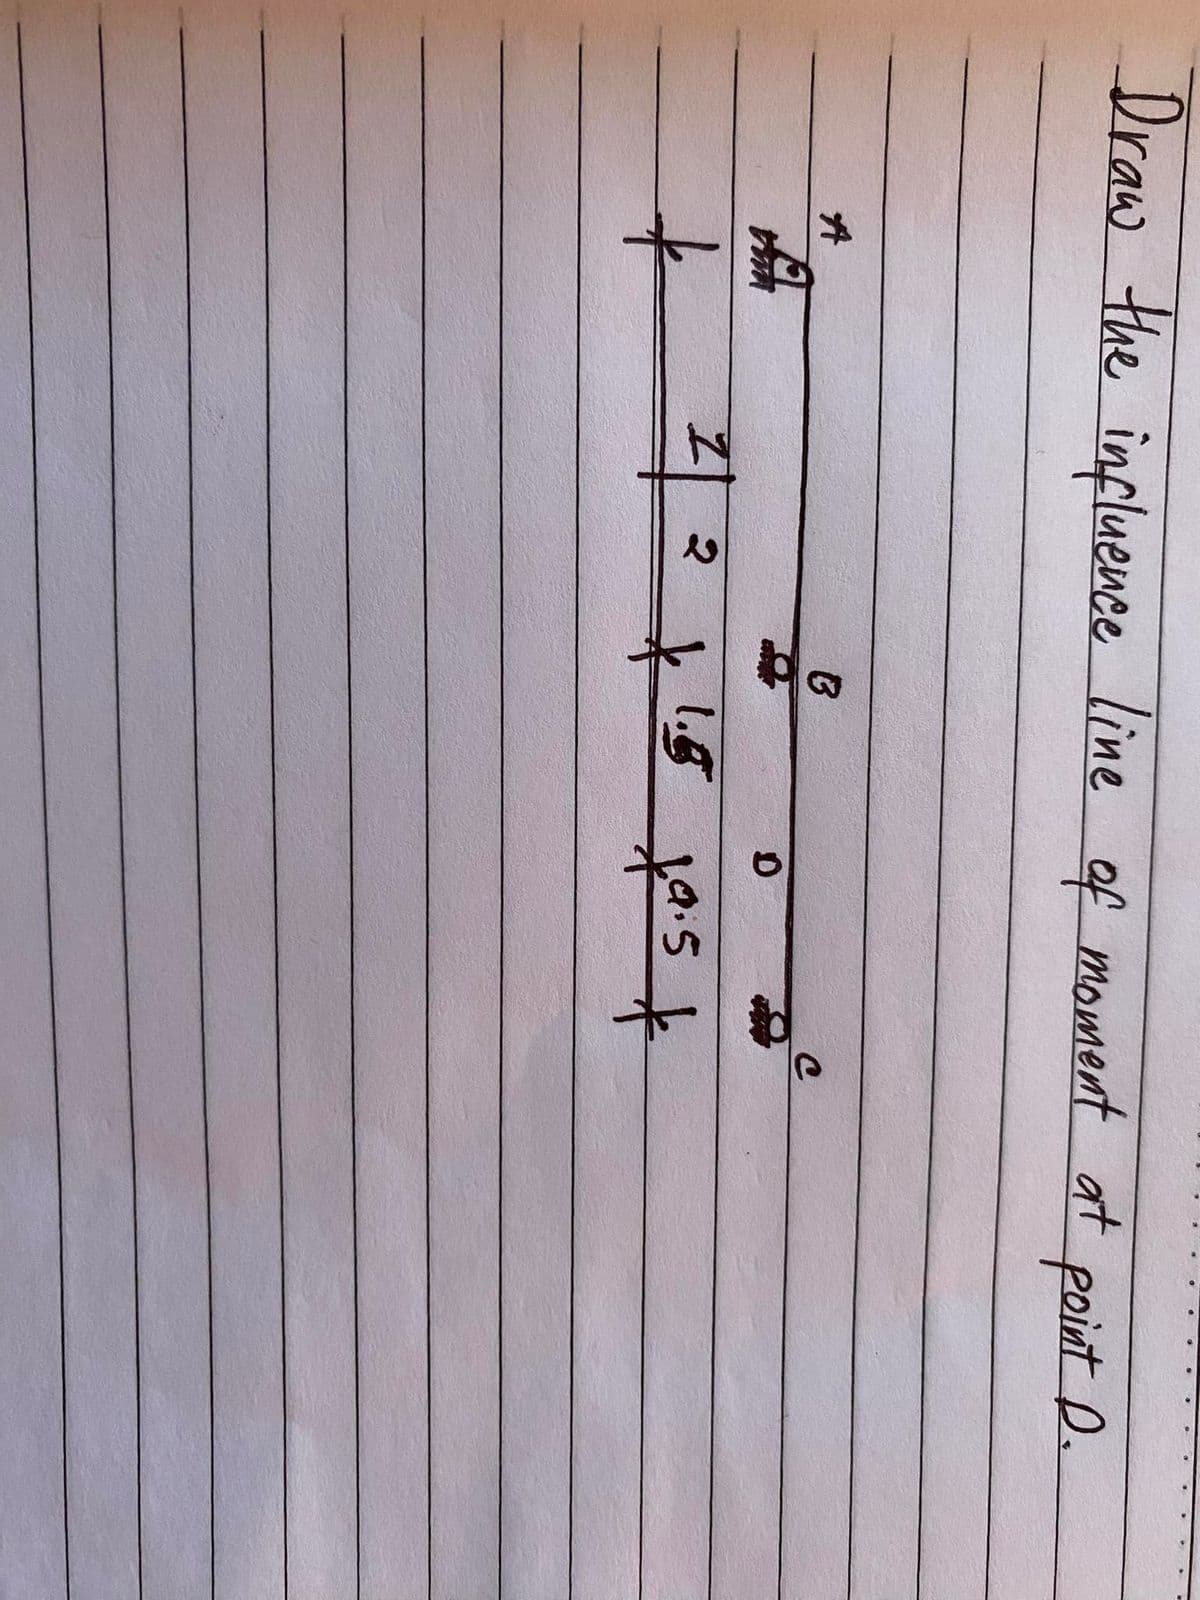 Draw the influence line of moment at point D.
A B C
D
2 1.5 0.5